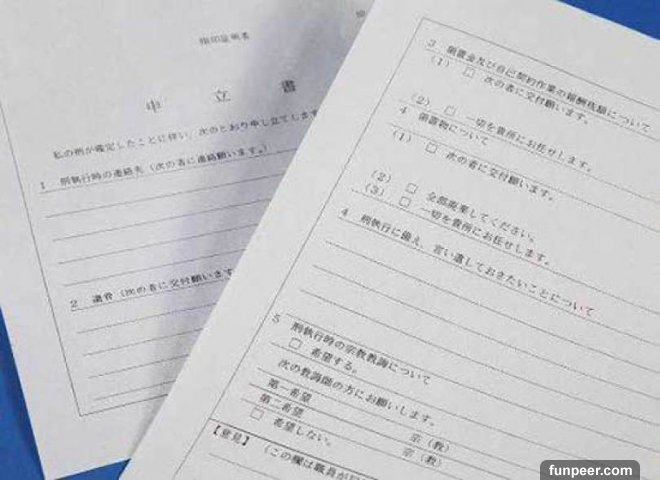 指印証明者
申立書
私の刑が確定したことに伴い、次のとおり申し立てします
1 刑執行時の連絡先（次の者に連絡願います。）
2 遺骨（次の者に交付願います
3 領置金及び自己契約作業の報酬残額について
（1） □ 次の者に交付願います。
（2） □ 一切を貴所にお任せします。
4 領置物について
（1） □ 次の者に交付願います。
（2） □ 全部廃棄してください。
（3） □ 一切を貴所にお任せします。
4 刑執行に備え、言い遺しておきたいことについて
5 刑執行時の宗教教誨について
□ 希望する。
次の教誨師の方にお願いします。
第一希望 宗（教）
第二希望 宗（教）
□ 希望しない。
【意見】
（この欄は職員が
funpeer.com